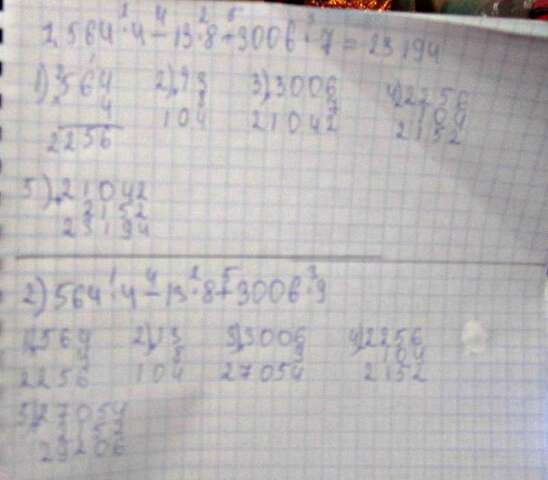 1) 564·4-13·8+3006·7=23194
1) 564 2) 13 3) 3006 4) 2256
4 8 7 104
2256 104 21042 2152
5) 21042
2152
23194
2) 564·4-13·8+3006·9
1) 564 2) 13 3) 3006 4) 2256
4 8 9 104
2256 104 27054 2152
5) 27054
2152
29206